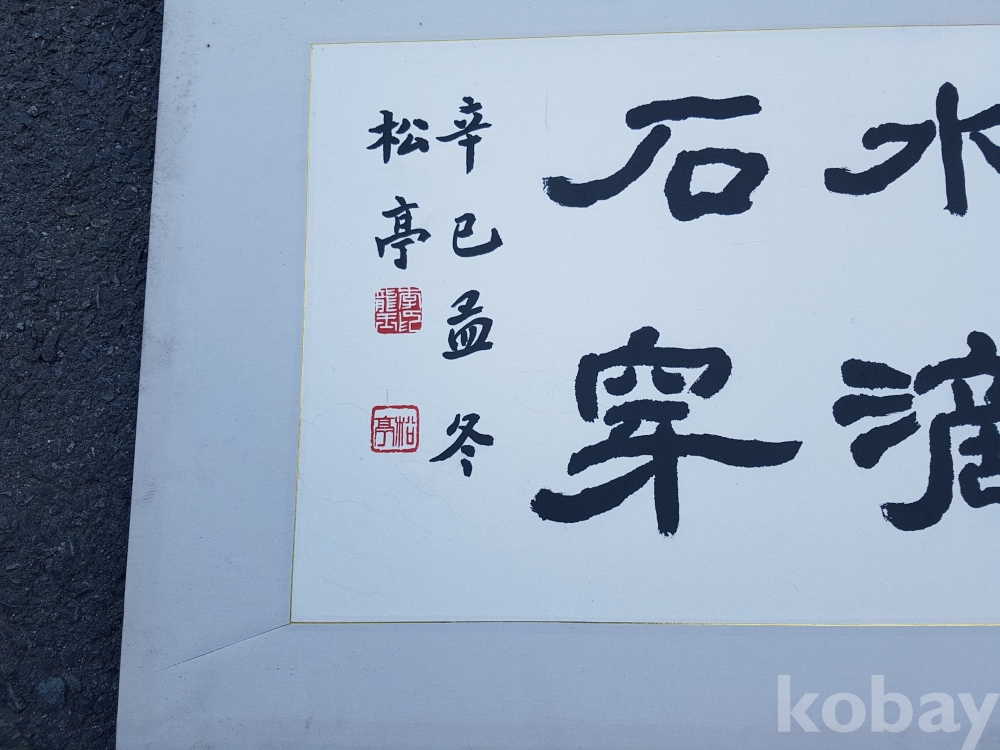 水滴
石穿
辛巳孟冬
松亭
松亭
kobay